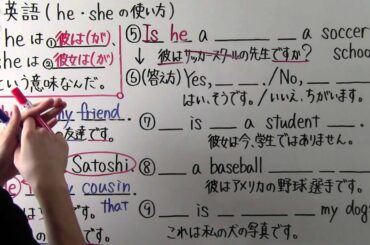 英語（he・sheの使い方）
heは①彼は(が)、
sheは②彼女は(が)
という意味なんだ。
my friend.
友達です。
Satoshi.
my cousin.
that
です。
⑤ Is he a ___ ___ a soccer
school
↓ 彼はサッカースクールの先生ですか？
⑥(答え方) Yes, ___ . /No, ___
はい、そうです。/いいえ、ちがいます。
⑦ ___ is ___ a student ___ .
彼女は今、学生ではありません。
⑧ ___ a baseball ___
彼はアメリカの野球選手です。
⑨ ___ is ___ ___ ___ my dog
これは私の犬の写真です。